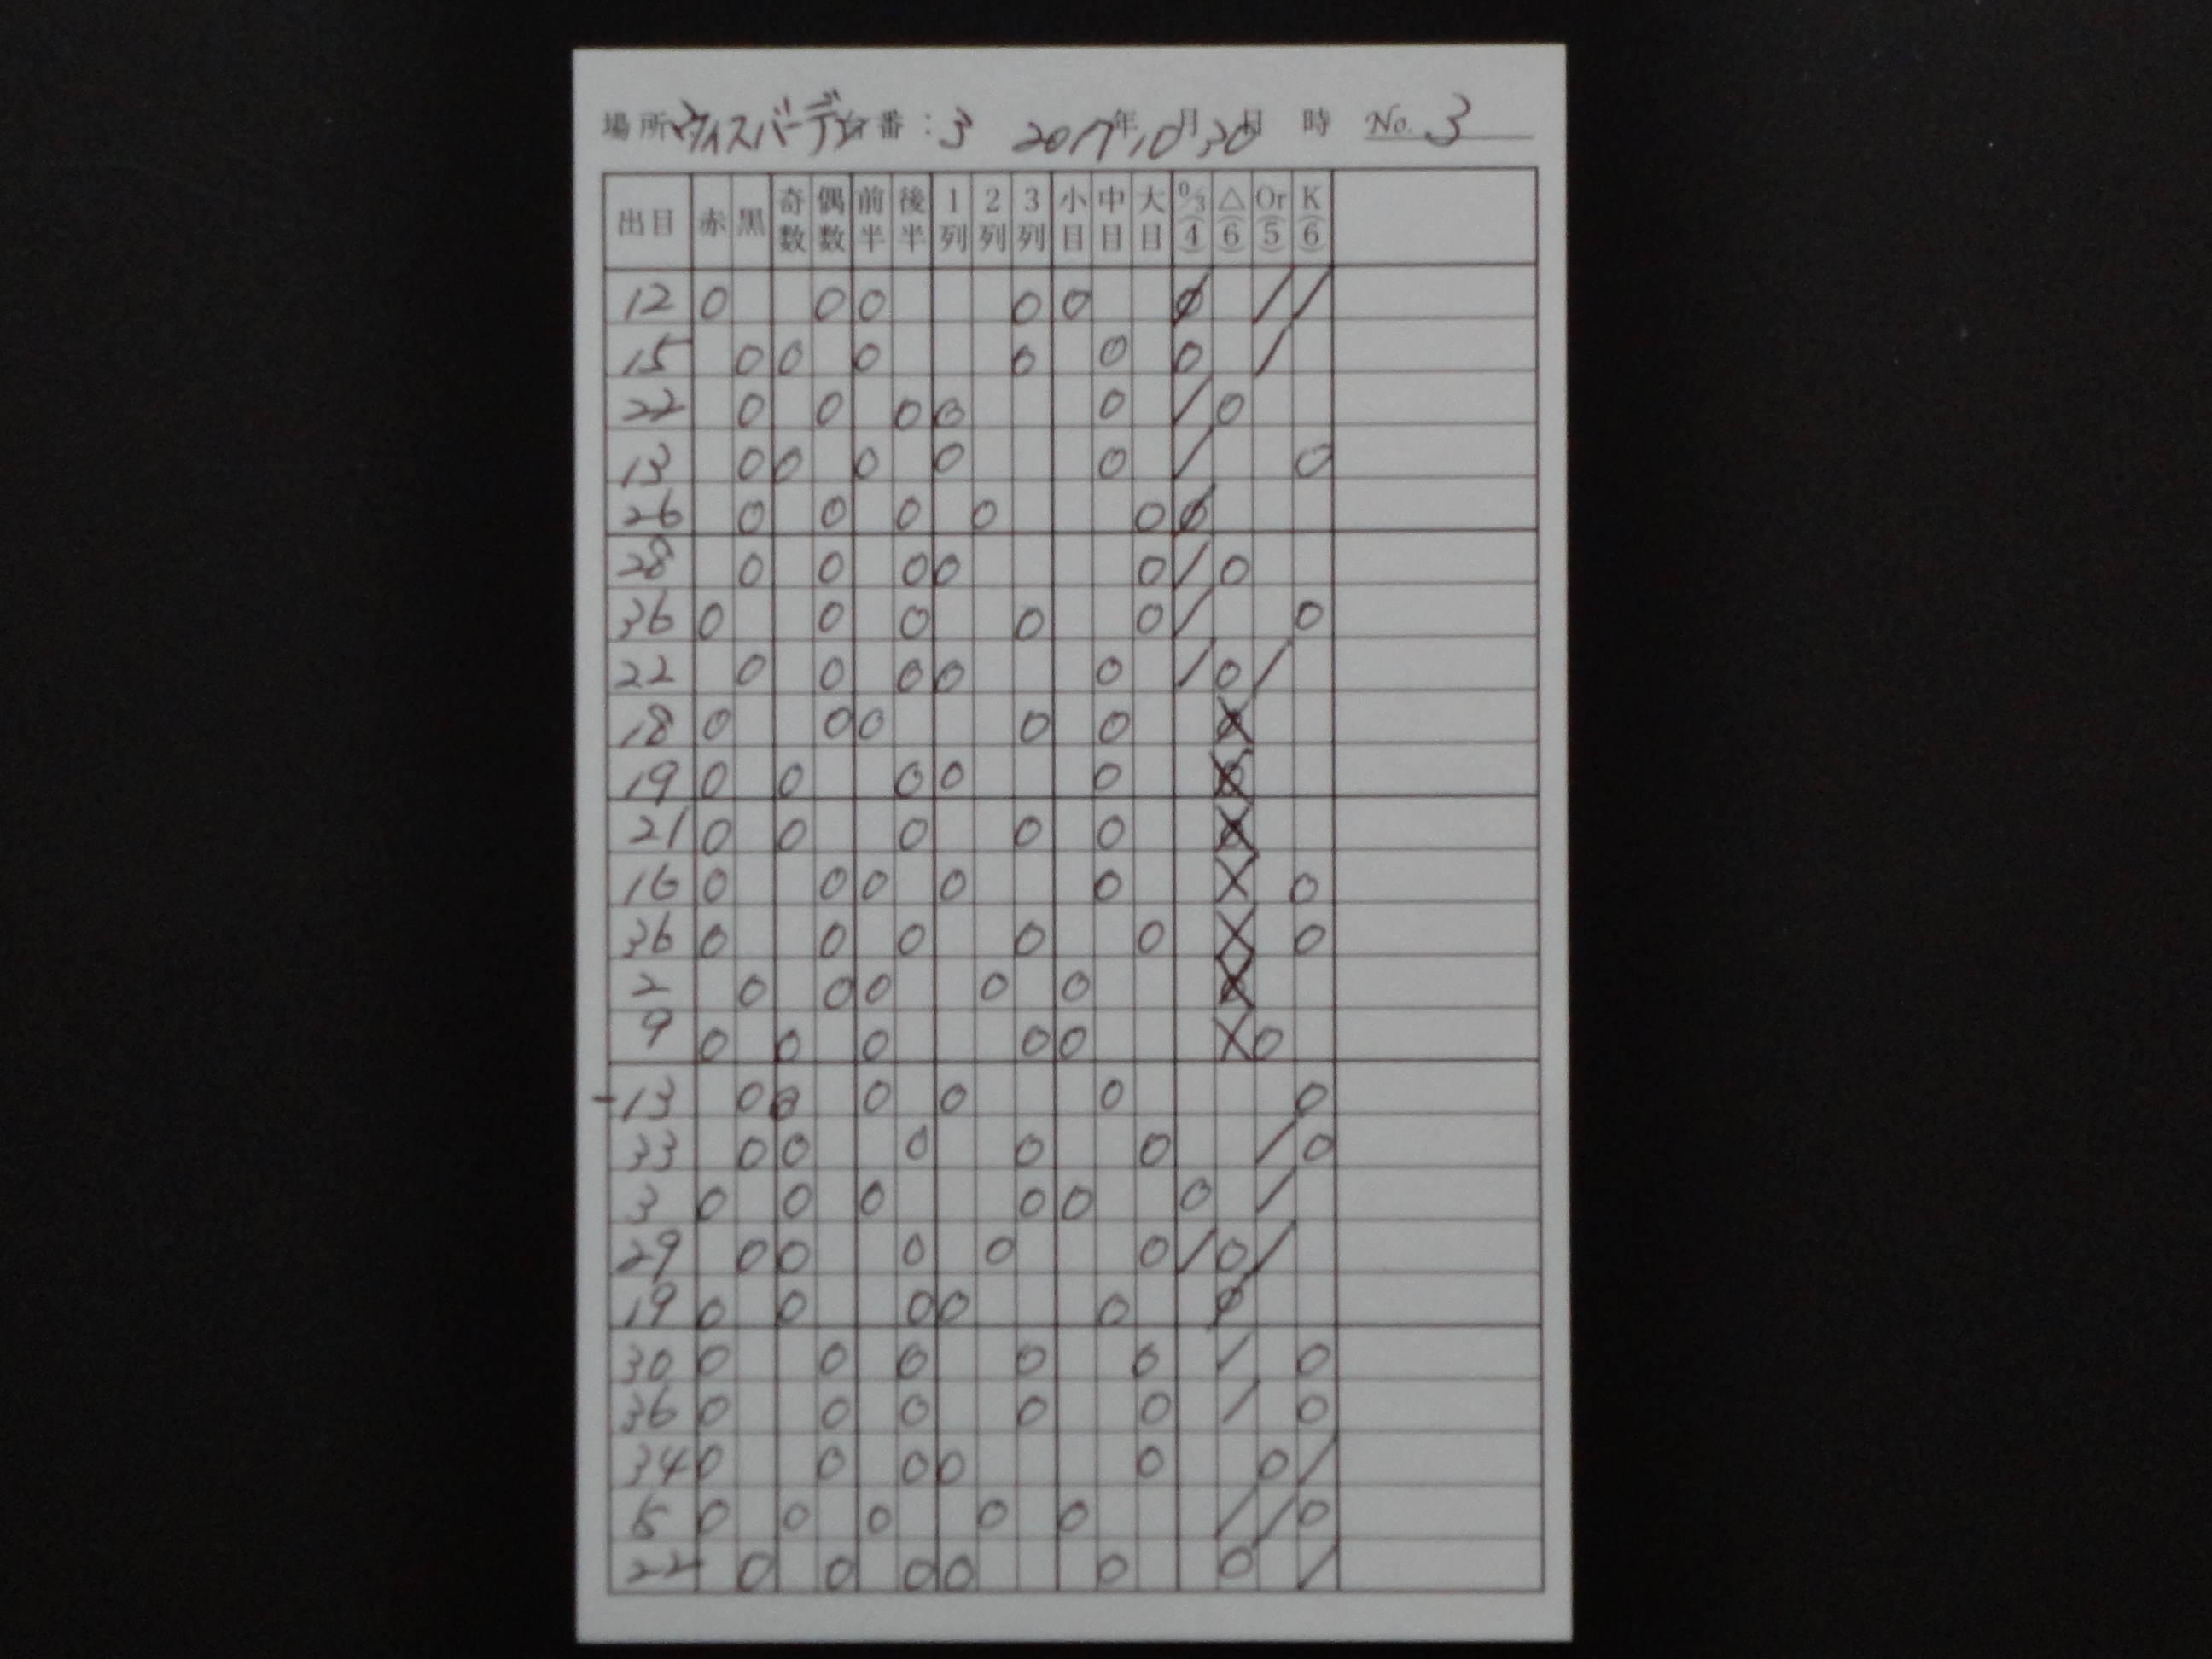 場所 ヴィスバーデン 台番:3 2017年10月30日 時 No. 3
出目 赤 黒 奇数 偶数 前半 後半 1列 2列 3列 小目 中目 大目 0/3(4) △(6) Or(5) K(6)
12 0 0 0 0 0 Ø / /
15 0 0 0 0 0 0 /
22 0 0 0 0 0 / 0
13 0 0 0 0 0 / 0
26 0 0 0 0 0 Ø
28 0 0 0 0 0 / 0
36 0 0 0 0 0 / 0
22 0 0 0 0 0 / 0 /
18 0 0 0 0 0 X
19 0 0 0 0 0 X
21 0 0 0 0 0 X
16 0 0 0 0 0 X 0
36 0 0 0 0 0 X 0
2 0 0 0 0 0 X
9 0 0 0 0 0 X 0
-13 0 0 0 0 0 0
33 0 0 0 0 0 / 0
3 0 0 0 0 0 0 /
29 0 0 0 0 0 / 0 /
19 0 0 0 0 0 Ø
30 0 0 0 0 0 / 0
36 0 0 0 0 0 / 0
34 0 0 0 0 0 0 /
5 0 0 0 0 0 / / 0
22 0 0 0 0 0 0 /